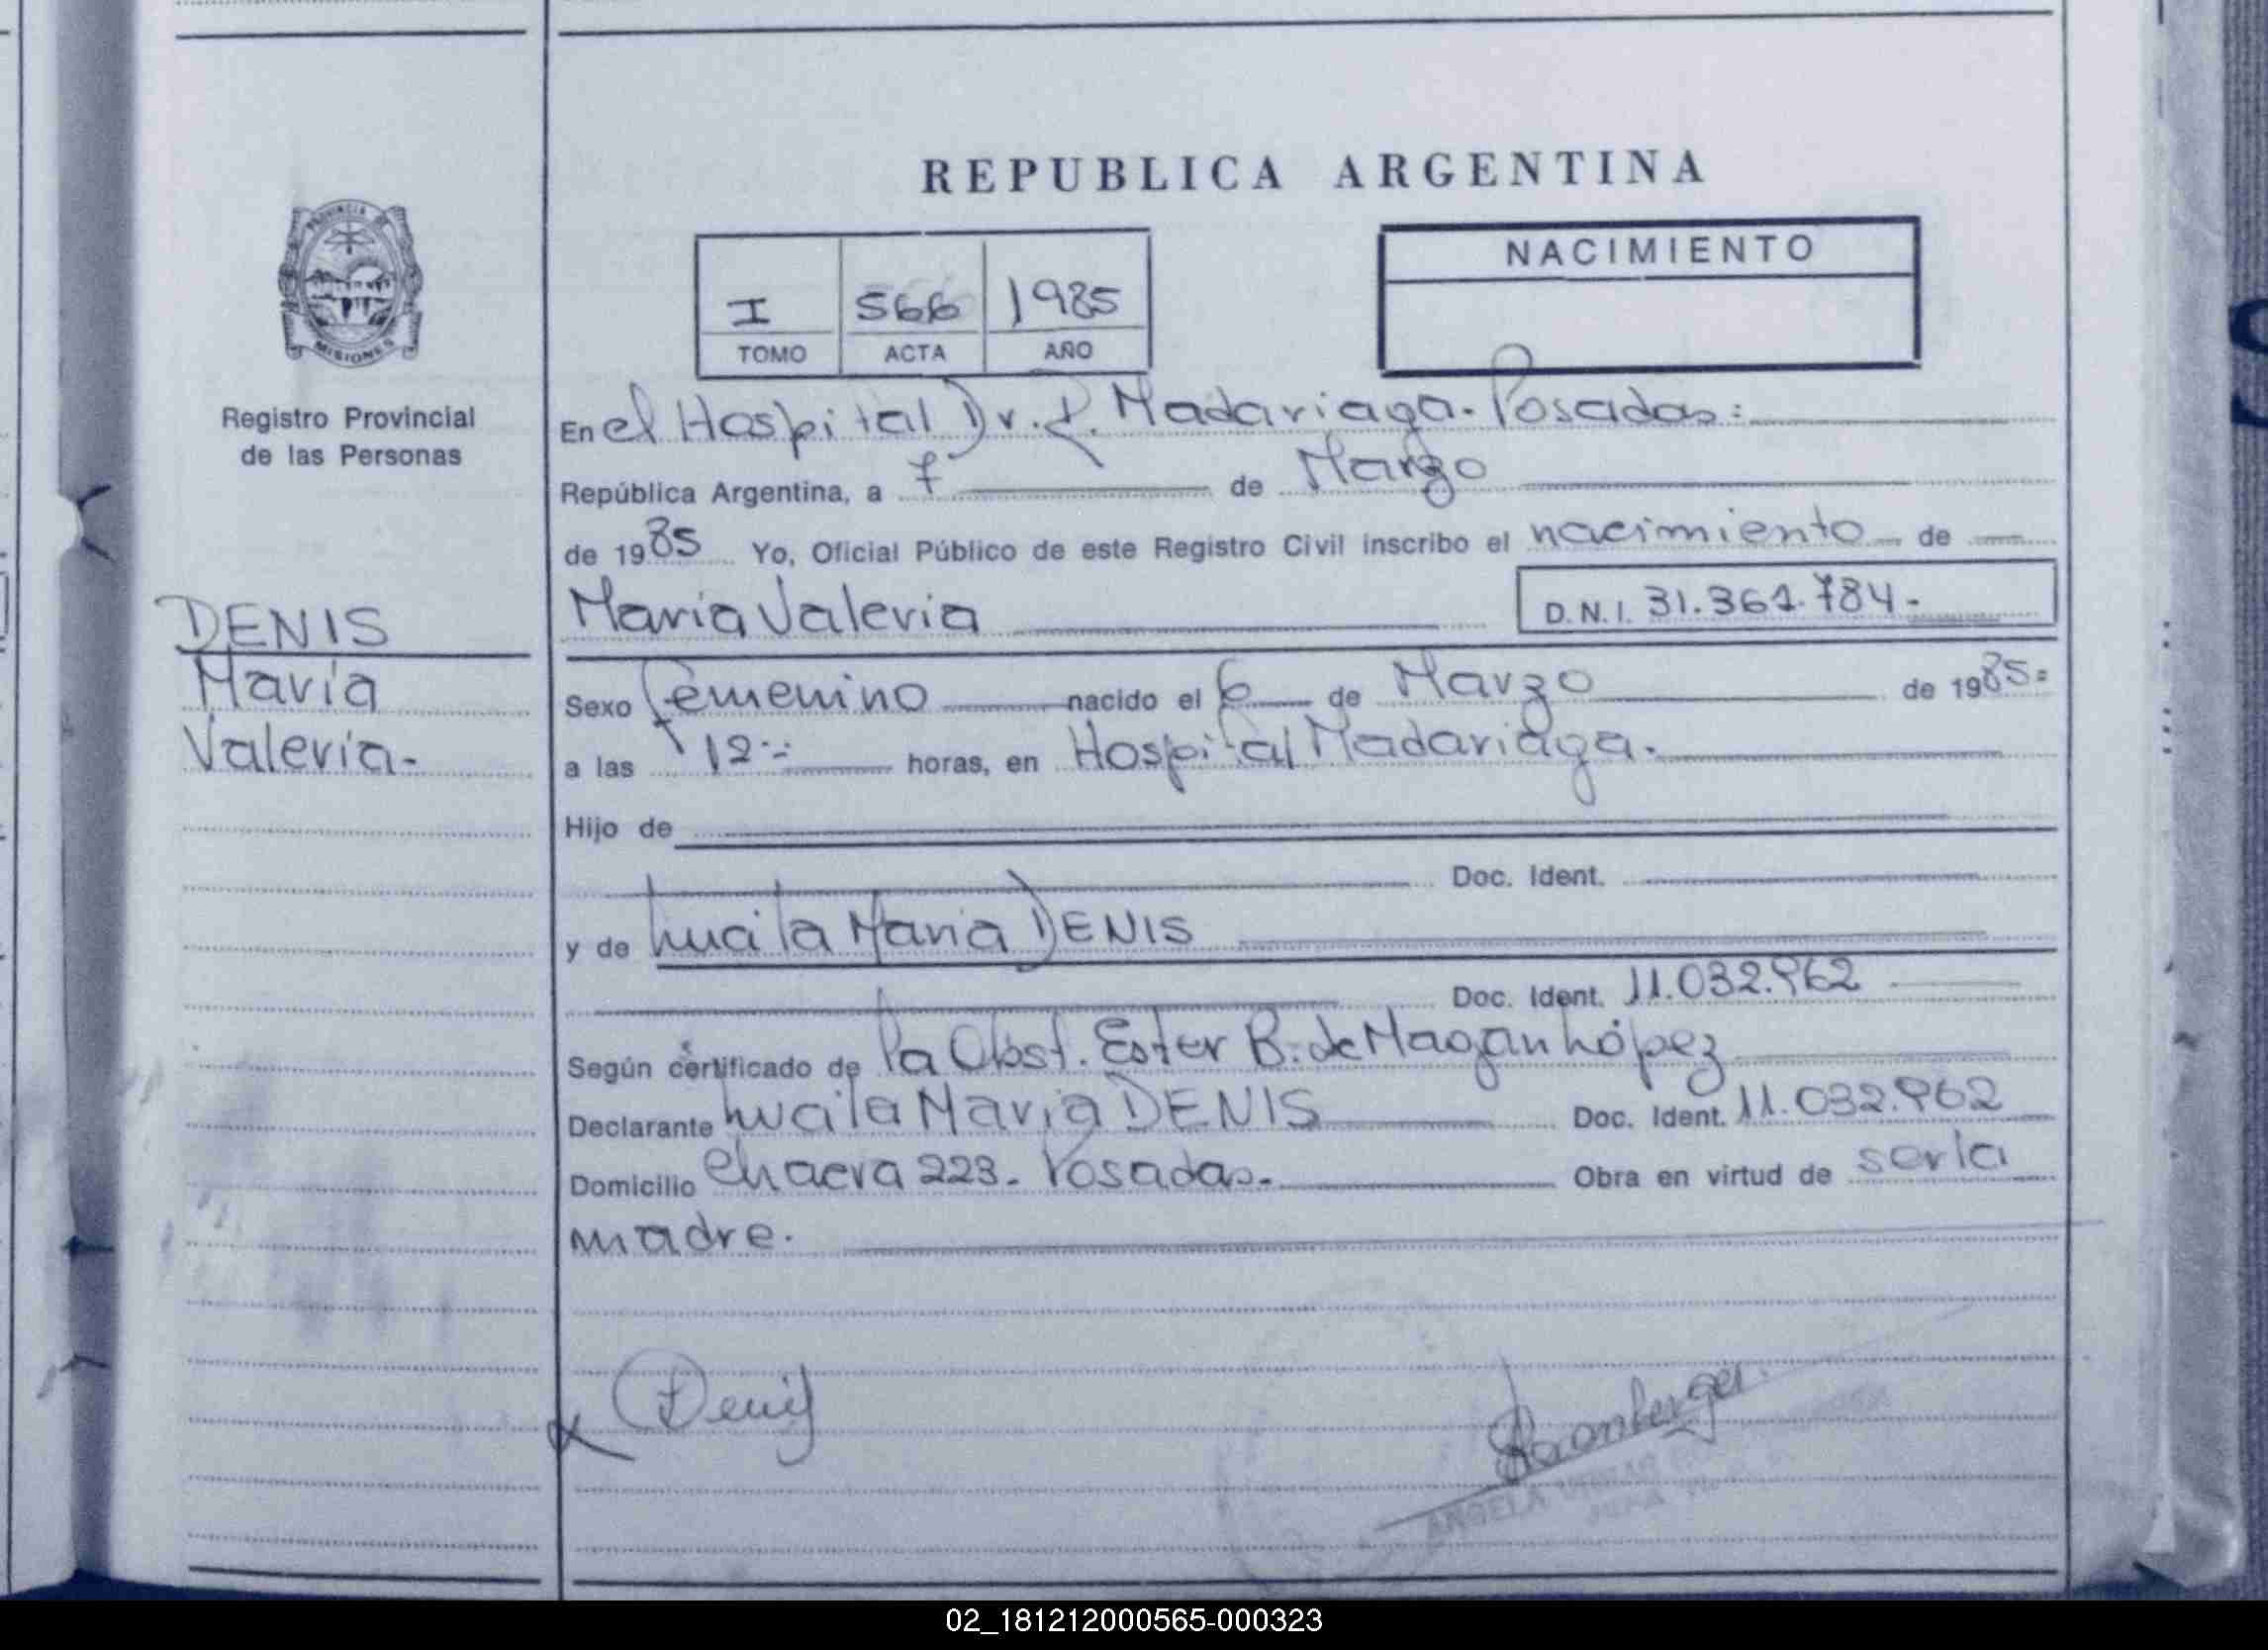 REPUBLICA ARGENTINA
PROVINCIA DE
MISIONES
Registro Provincial
de las Personas
I 566 1985
TOMO ACTA AÑO
NACIMIENTO
En el Hospital Dr. R. Madariaga. Posadas:
República Argentina, a 7 de Marzo
de 1985 Yo, Oficial Público de este Registro Civil inscribo el nacimiento de
DENIS
María
Valeria.
Maria Valeria D.N.I. 31.361.784.-
Sexo Femenino nacido el 6 de Marzo de 1985=
a las 12:- horas, en Hospital Madariaga.
Hijo de
Doc. Ident.
y de Lucila Maria DENIS
Doc. Ident. 11.032.962
Según certificado de la Obst. Ester B. de Magan López
Declarante Lucila Maria DENIS Doc. Ident. 11.032.962
Domicilio Chacra 223. Posadas. Obra en virtud de ser la
madre.
Denis
ANGELA
02_181212000565-000323